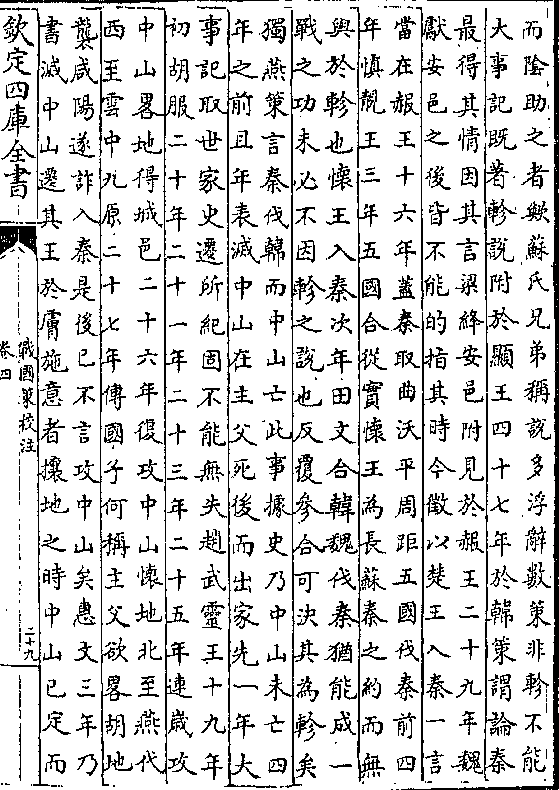 而陰助之者歟蘇氏兄弟稱說多浮辭數策非軫不能
大事記既著軫說附於顯王四十七年於韓策謂論秦
最得其情因其言梁絳安邑附見於赧王二十九年魏
獻安邑之後皆不能的指其時今徵以楚王入秦一言
當在赧王十六年蓋秦取曲沃平周距五國伐秦前四
年慎靚王三年五國合從實懷王為長蘇秦之約而無
與於軫也懷王入秦次年田文合韓魏伐秦猶能成一
戰之功未必不因軫之說也反覆參合可決其為軫矣
獨燕策言秦伐韓而中山亡此事據史乃中山未亡四
年之前且年表滅中山在主父死後而出家先一年大
事記取世家史遷所紀固不能無失趙武靈王十九年
初胡服二十年二十一年二十三年二十五年連歲攻
中山畧地得城邑二十六年復攻中山懐地北至燕代
西至雲中九原二十七年傳國子何稱主父欲畧胡地
襲咸陽遂詐入秦是後已不言攻中山矣惠文三年乃
書滅中山遷其王於膚施意者攘地之時中山已定而
欽定四庫全書
戰國策校注
卷四
二十九